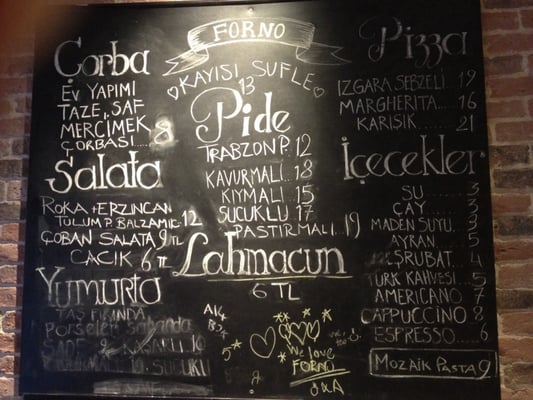 FORNO
KAYISI SUFLE
13
Çorba
EV YAPIMI
TAZE, SAF
MERCİMEK
ÇORBASI.....8
Salata
ROKA + ERZİNCAN
TULUM P. BALZAMİC 12
ÇOBAN SALATA 9 TL
CACIK 6 TL
Yumurta
TAŞ FIRINDA
Porselen sahanda
SADE KAŞARLI 10
10 SUCUKLU
Pide
TRABZON P. 12
KAVURMALI...18
KIYMALI...15
SUCUKLU 17
PASTIRMALI 19
Lahmacun
6 TL
A14
We love
FORNO
Pizza
IZGARA SEBZELİ 19
MARGHERITA.... 16
KARIŞIK...... 21
İçecekler
SU 3
ÇAY 3
MADEN SUYU 3
AYRAN 5
MEŞRUBAT 4
TÜRK KAHVESİ 5
AMERICANO 7
CAPPUCCİNO 8
ESPRESSO 6
MOZAİK PASTA 9